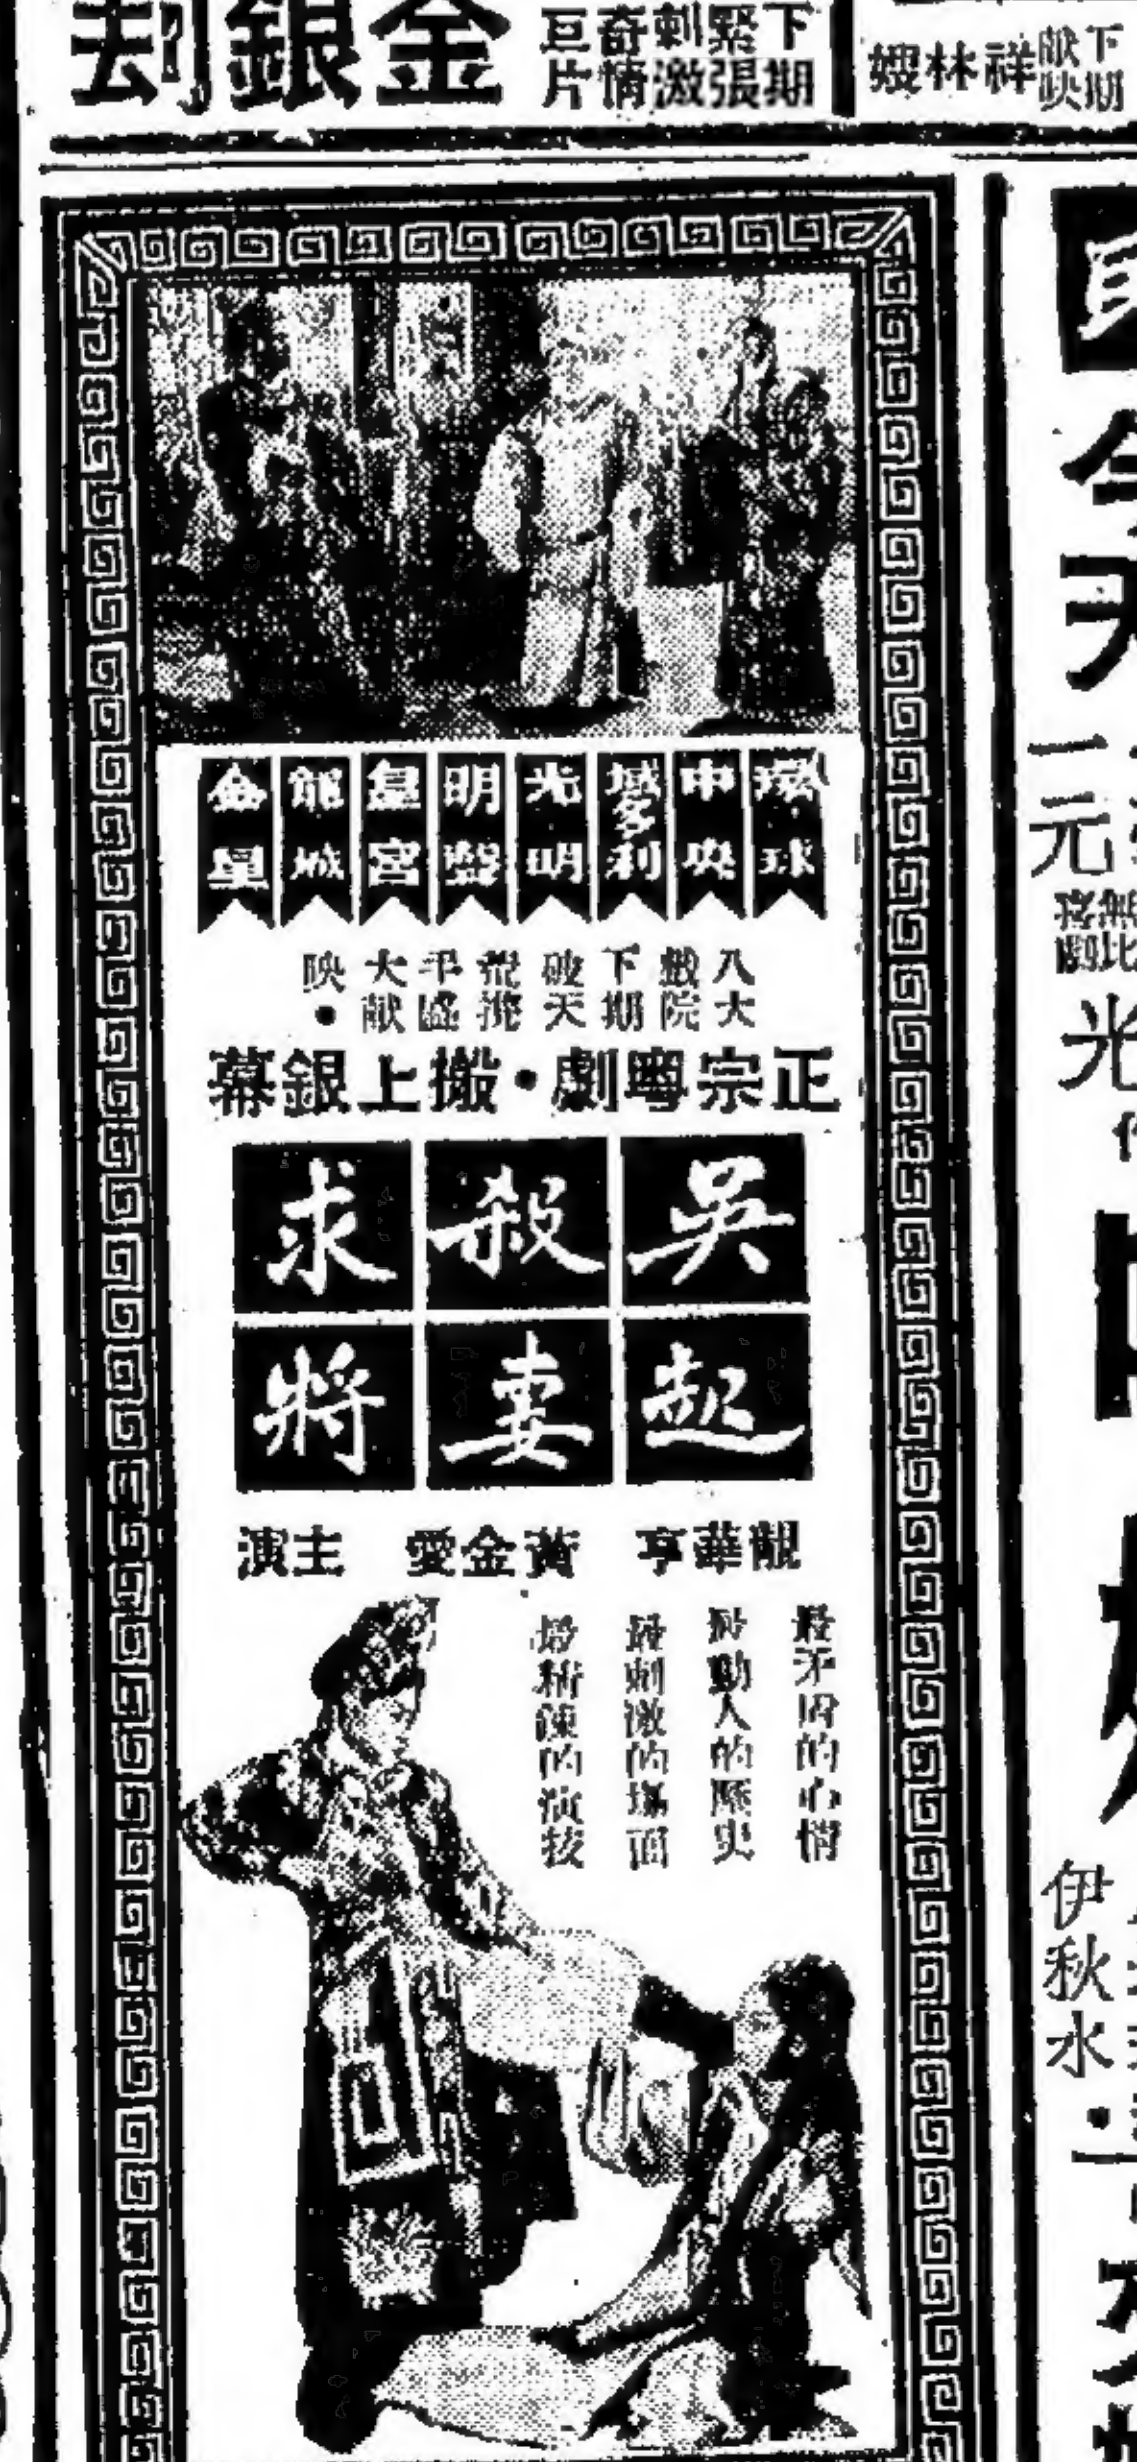 下期
緊張
刺激
奇情
巨片
金銀刧
下期
献映
祥林嫂
環球
中央
域多利
光明
明聲
皇宮
龍城
金星
八大
戲院
下期
破天
荒換
平盛
大獻
映•
正宗粵劇•搬上銀幕
吳起
殺妻
求將
靚華亨 黃金愛 主演
最矛盾的心情
最動人的歷史
最刺激的場面
最精湛的演技
今
二元
光
伊秋水•